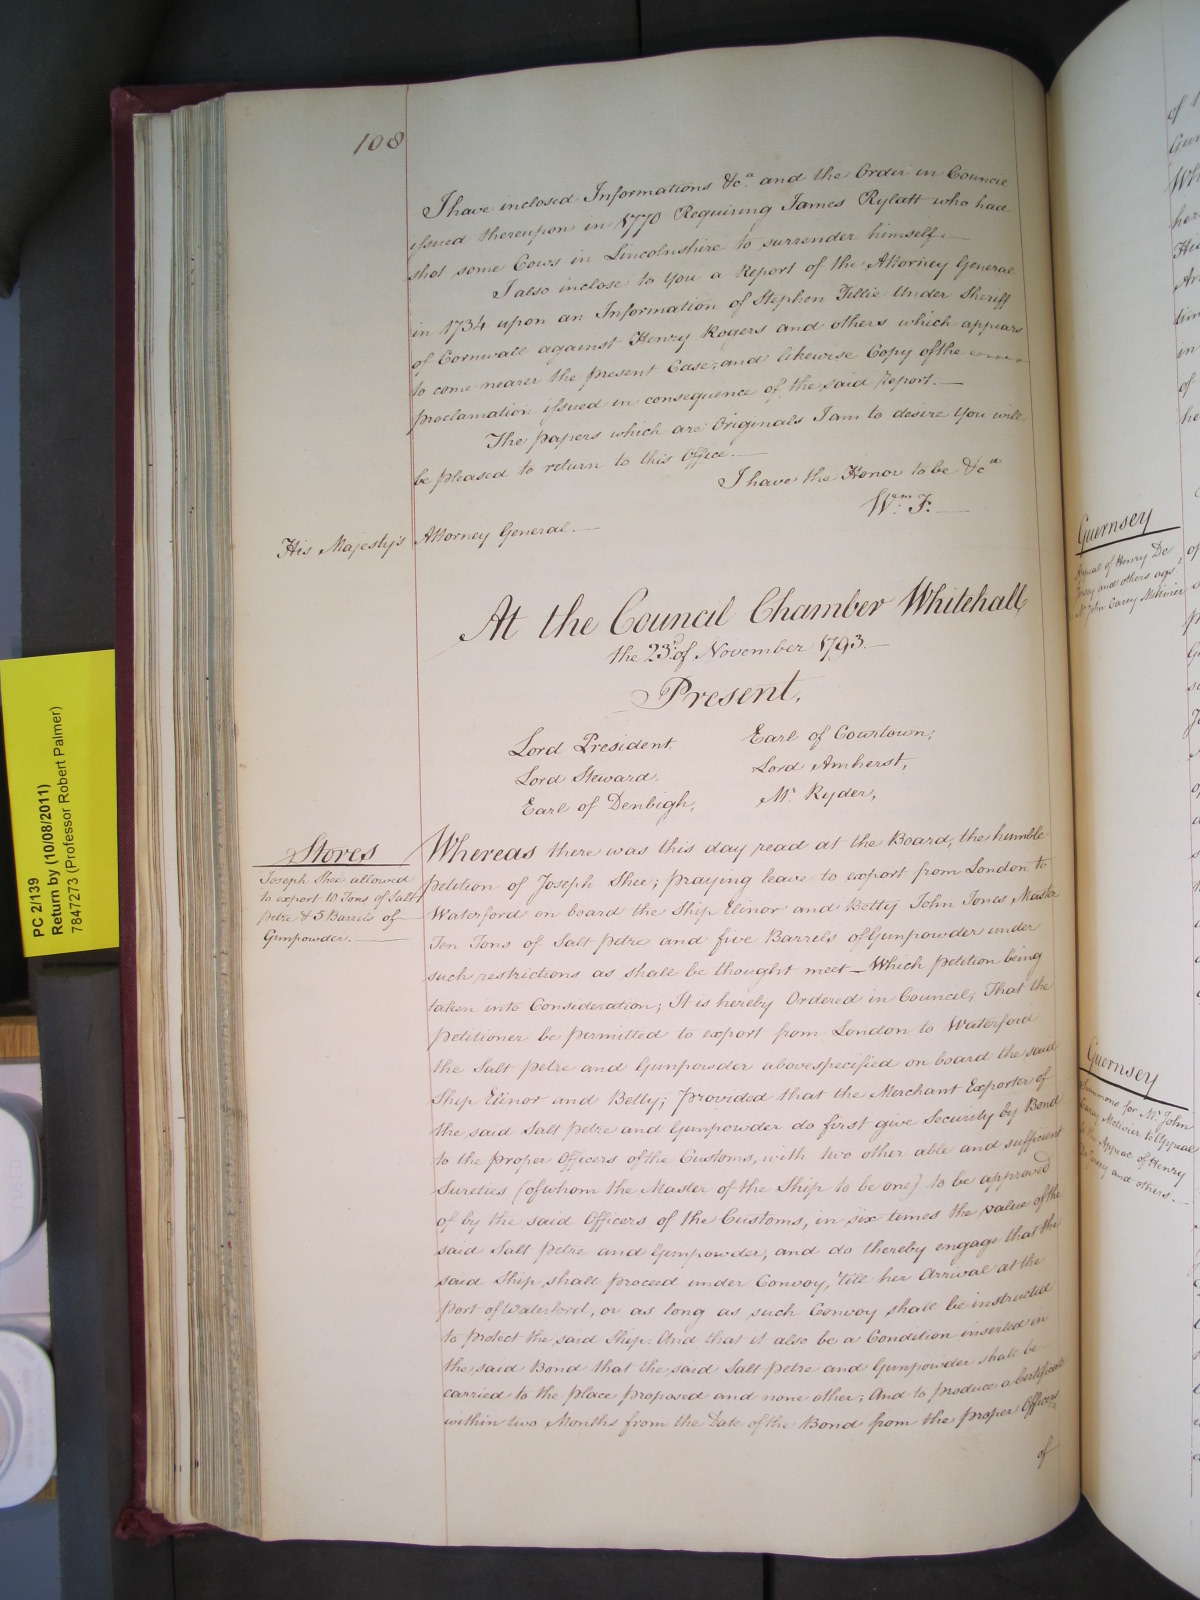 108
I have inclosed Informations &c.a and the Order in Council
issued thereupon in 1770 Requiring James Rylatt who had
shot some Cows in Lincolnshire to surrender himself.—
I also inclose to You a Report of the Attorney General
in 1734 upon an Information of Stephen Tillie Under Sheriff
of Cornwall against Henry Rogers and others which appears
to come nearer the present Case; and likewise Copy of the
proclamation issued in consequence of the said Report.—
The papers which are Originals I am to desire You will
be pleased to return to this Office.—
I have the Honor to be &c.a
Wm. F.—
His Majesty's Attorney General.—
At the Council Chamber Whitehall
the 23.d of November 1793.—
Present,
Lord President, Earl of Courtown,
Lord Steward, Lord Amherst,
Earl of Denbigh, Mr. Ryder,
Stores
Joseph Shee allowed
to export 10 Tons of Salt
petre & 5 Barrels of
Gunpowder.—
Whereas there was this day read at the Board, the humble
petition of Joseph Shee; praying leave to export from London to
Waterford on board the Ship Elinor and Betty John Jones Master
Ten Tons of Salt petre and five Barrels of Gunpowder under
such restrictions as shall be thought meet — Which petition being
taken into Consideration; It is hereby Ordered in Council, That the
petitioner be permitted to export from London to Waterford
the Salt petre and Gunpowder abovespecified on board the said
Ship Elinor and Betty; provided that the Merchant Exporter of
the said Salt petre and Gunpowder do first give Security by Bond
to the proper Officers of the Customs, with two other able and sufficient
Sureties (of whom the Master of the Ship to be one) to be approved
of by the said Officers of the Customs, in six times the value of the
said Salt petre and Gunpowder, and do thereby engage that the
said Ship shall proceed under Convoy, 'till her Arrival at the
port of Waterford, or as long as such Convoy shall be instructed
to protect the said Ship: And that it also be a Condition inserted in
the said Bond that the said Salt petre and Gunpowder shall be
carried to the place proposed and none other; And to produce a Certificate
within two Months from the Date of the Bond from the proper Officers
of
PC 2/139
Return by (10/08/2011)
7847273 (Professor Robert Palmer)
Guernsey
Appeal of Henry De
Jersey and others agst.
Mr. John Carey Metivier
Guernsey
Summons for Mr. John
Carey Metivier to Appeal
to the Appeal of Henry
De Jersey and others.—